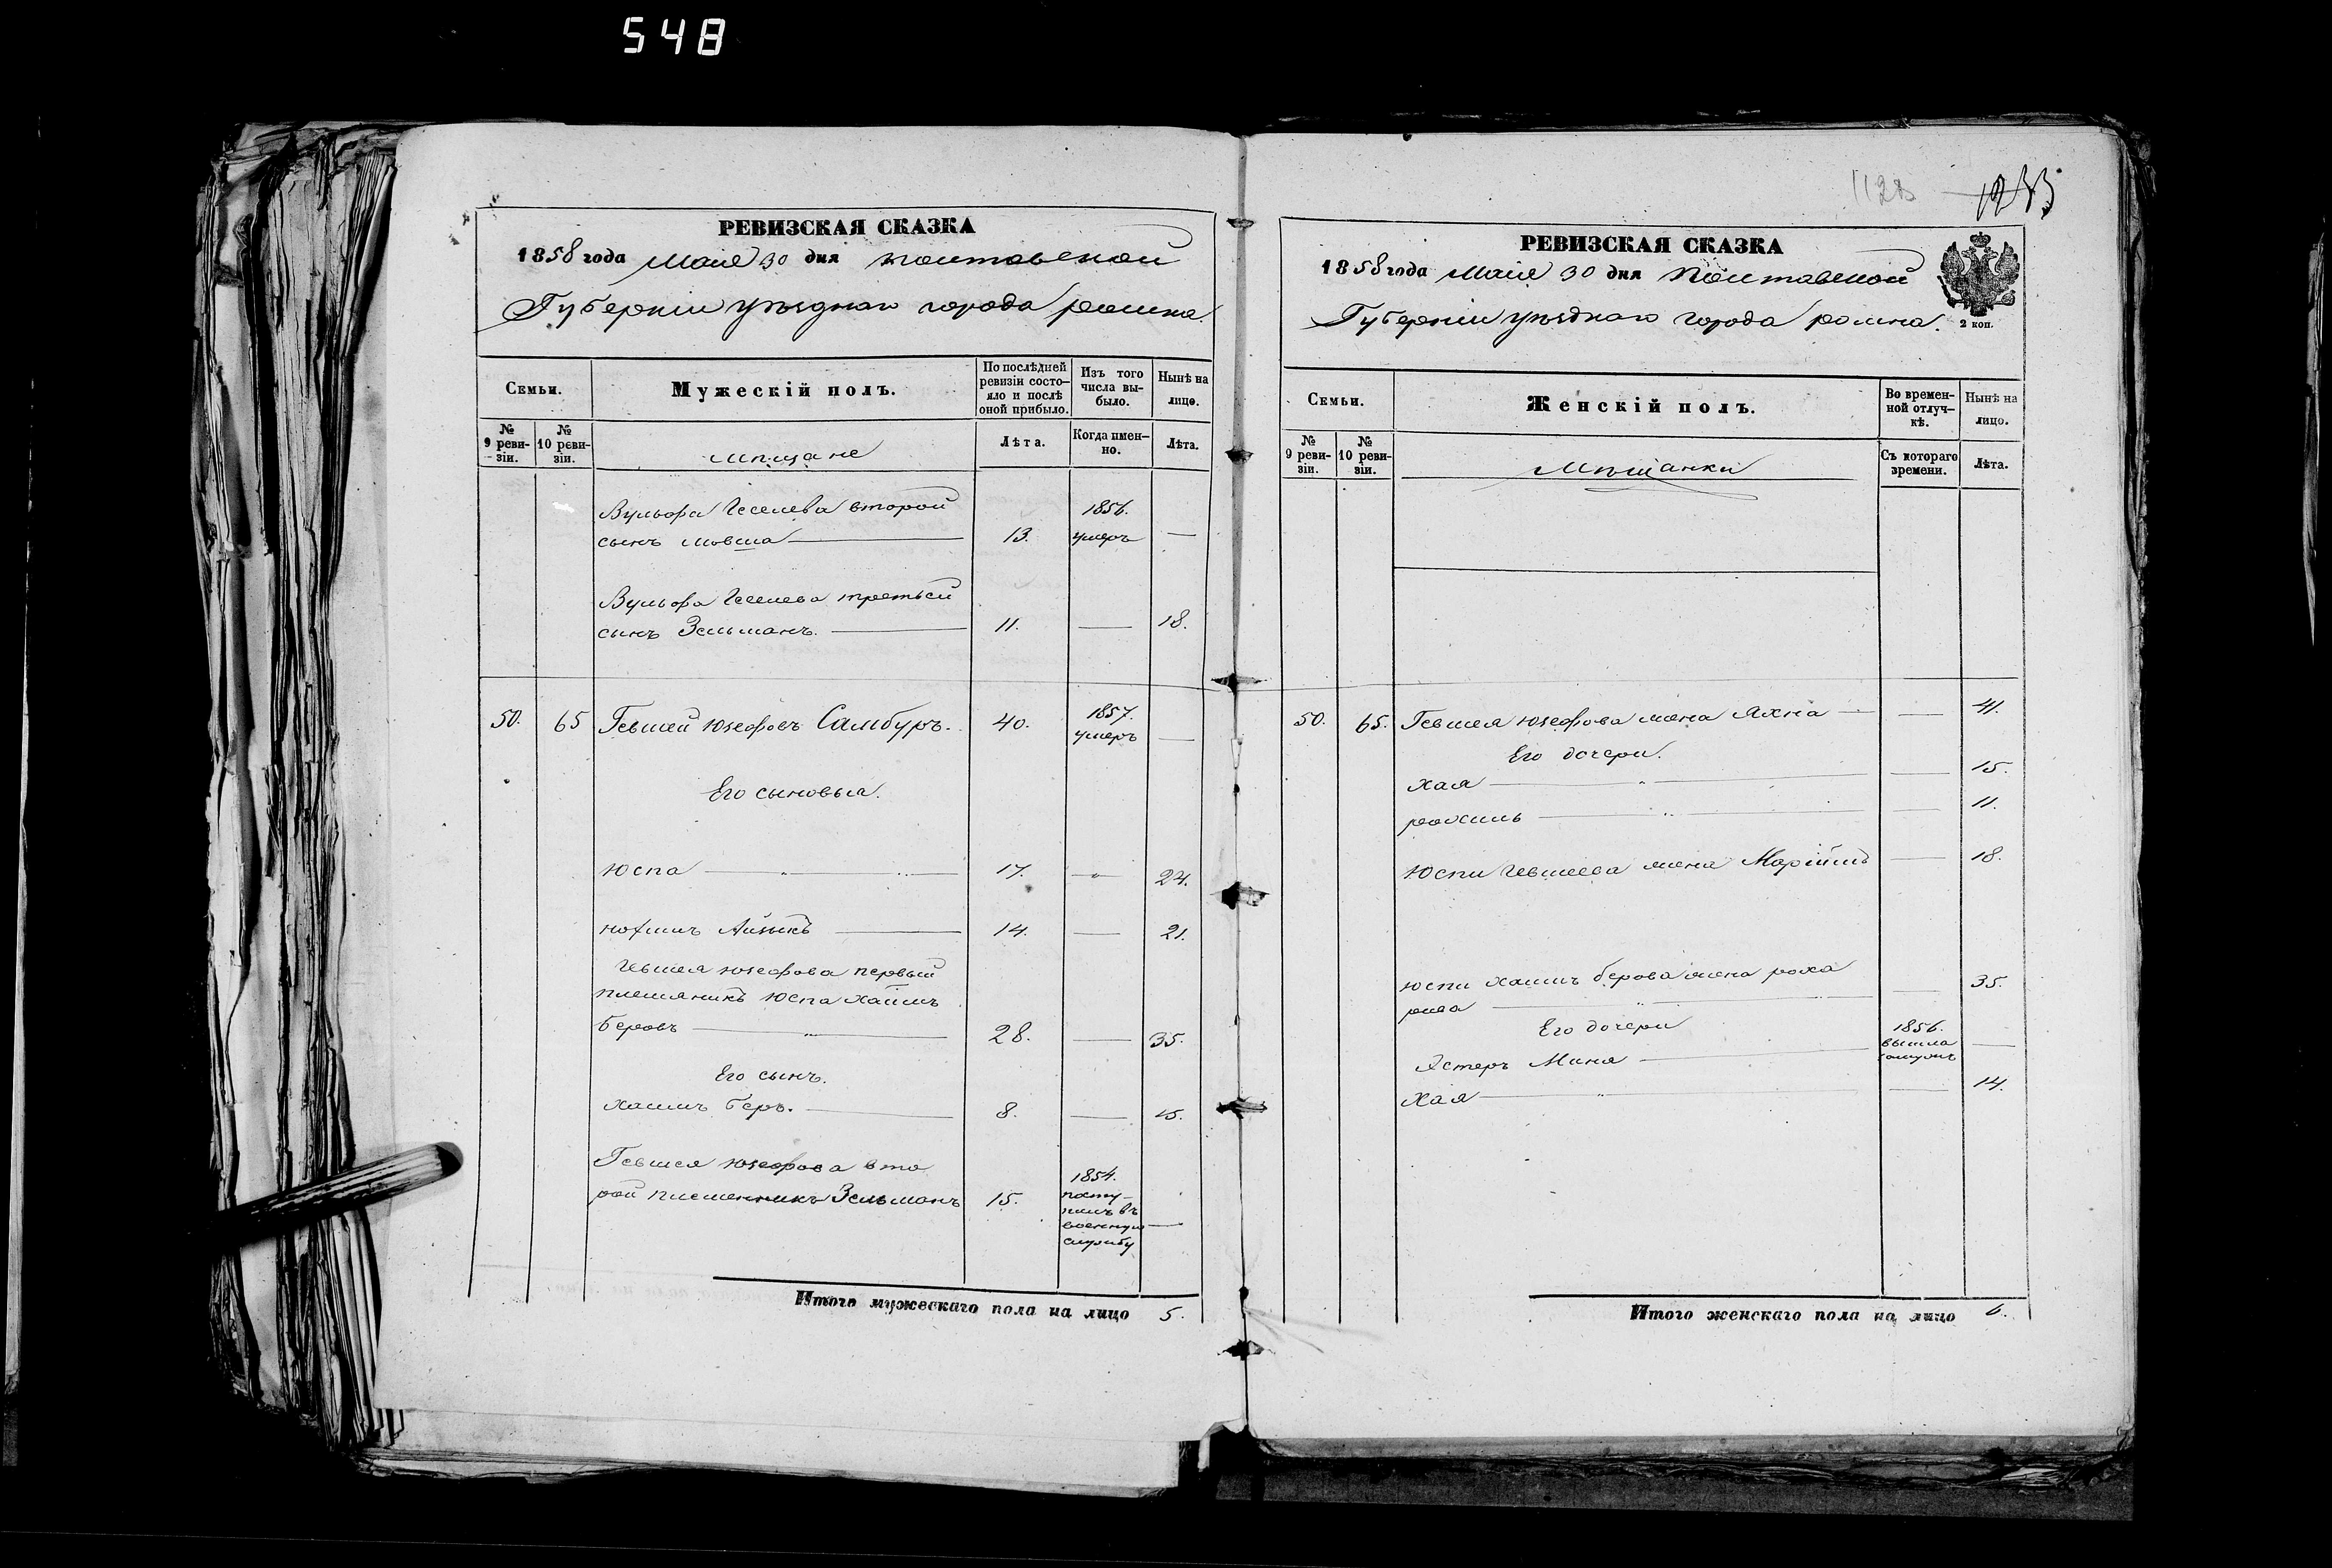 548
РЕВИЗСКАЯ СКАЗКА
1858 года Маія 30 дня Полтавской
Губерніи уѣзднаго города ромна.
Семьи.
Мужескій полъ.
По послѣдней ревизіи состо-яло и послѣ оной прибыло.
Изъ того числа вы-было.
Нынѣ на лицо.
№ 9 реви-зіи.
№ 10 реви-зіи.
мѣщане
Лѣта.
Когда имен-но.
Лѣта.
Вульфа второй 1856.
сынъ мовша 13. умеръ —
Вульфа третьей
сынъ Зельманъ. 11. — 18.
50. 65 Гевшей Юзефовъ Самбуръ. 40. 1857. умеръ —
Его сыновья.
Юспа 17. — 24.
нохимъ Айзикъ 14. — 21.
Гевшея юзефова первый
племяникъ Юспа хаимъ
беровъ 28. — 35.
Его сынъ.
хаимъ беръ. 8. — 15.
Гевшея юзефова вто
рой племенникъ Зельманъ 15. 1854.
посту-
пилъ въ
военную —
службу
Итого мужескаго пола на лицо 5.
1128
РЕВИЗСКАЯ СКАЗКА
1858 года Маія 30 дня Полтавской
Губерніи уѣзднаго города ромна.
2 коп.
Семьи.
Женскій полъ.
Во времен-ной отлуч-кѣ.
Нынѣ на лицо.
№ 9 реви-зіи.
№ 10 реви-зіи.
Мѣщанки
Съ котораго времени.
Лѣта.
50. 65. Гевшея юзефова жена Яхна — 41.
Его дочери.
хая — 15.
рохиль — 11.
Юспи Гевшеева жена — 18.
юспи хаимъ берова жена роха
рива — 35.
Его дочери
Эстеръ Мина 1856. вышла замужъ —
хая — 14.
Итого женскаго пола на лицо 6.